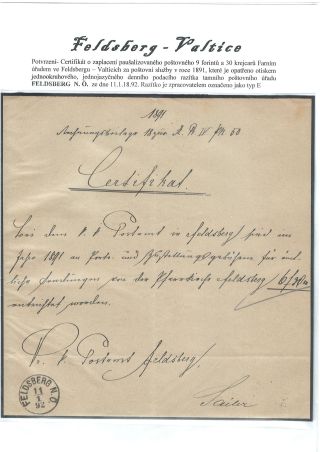 Feldsberg - Valtice
Potvrzení- Certifikát o zaplacení paušalizovaného poštovného 9 forintů a 30 krejcarů Farním
úřadem ve Feldsbergu – Valticích za poštovní služby v roce 1891, které je opatřeno otiskem
jednookruhového, jednojazyčného denního podacího razítka tamního poštovního úřadu
FELDSBERG N. Ö. ze dne 11.1.18.92. Razítko je zpracovatelem označeno jako typ E
1891
Rechnungsbeilage
Certifikat.
Bei dem k k Postamt in Feldsberg sind im
Jahre 1891 an Porto- und Zustellungsgebühren für
Sendungen von der Pfarrkirche Feldsberg
entrichtet worden.
K. k Postamt Feldsberg.
FELDSBERG N.Ö.
11
1
92